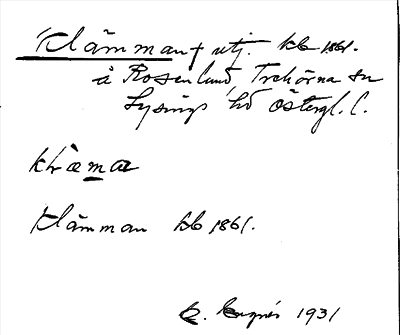 Klämman + utj. kb 1861.
å Rosenlund, Trehörna sn
Lysings hd Östergl. l.
klæ̀ma
Klämman kb 1861.
1931